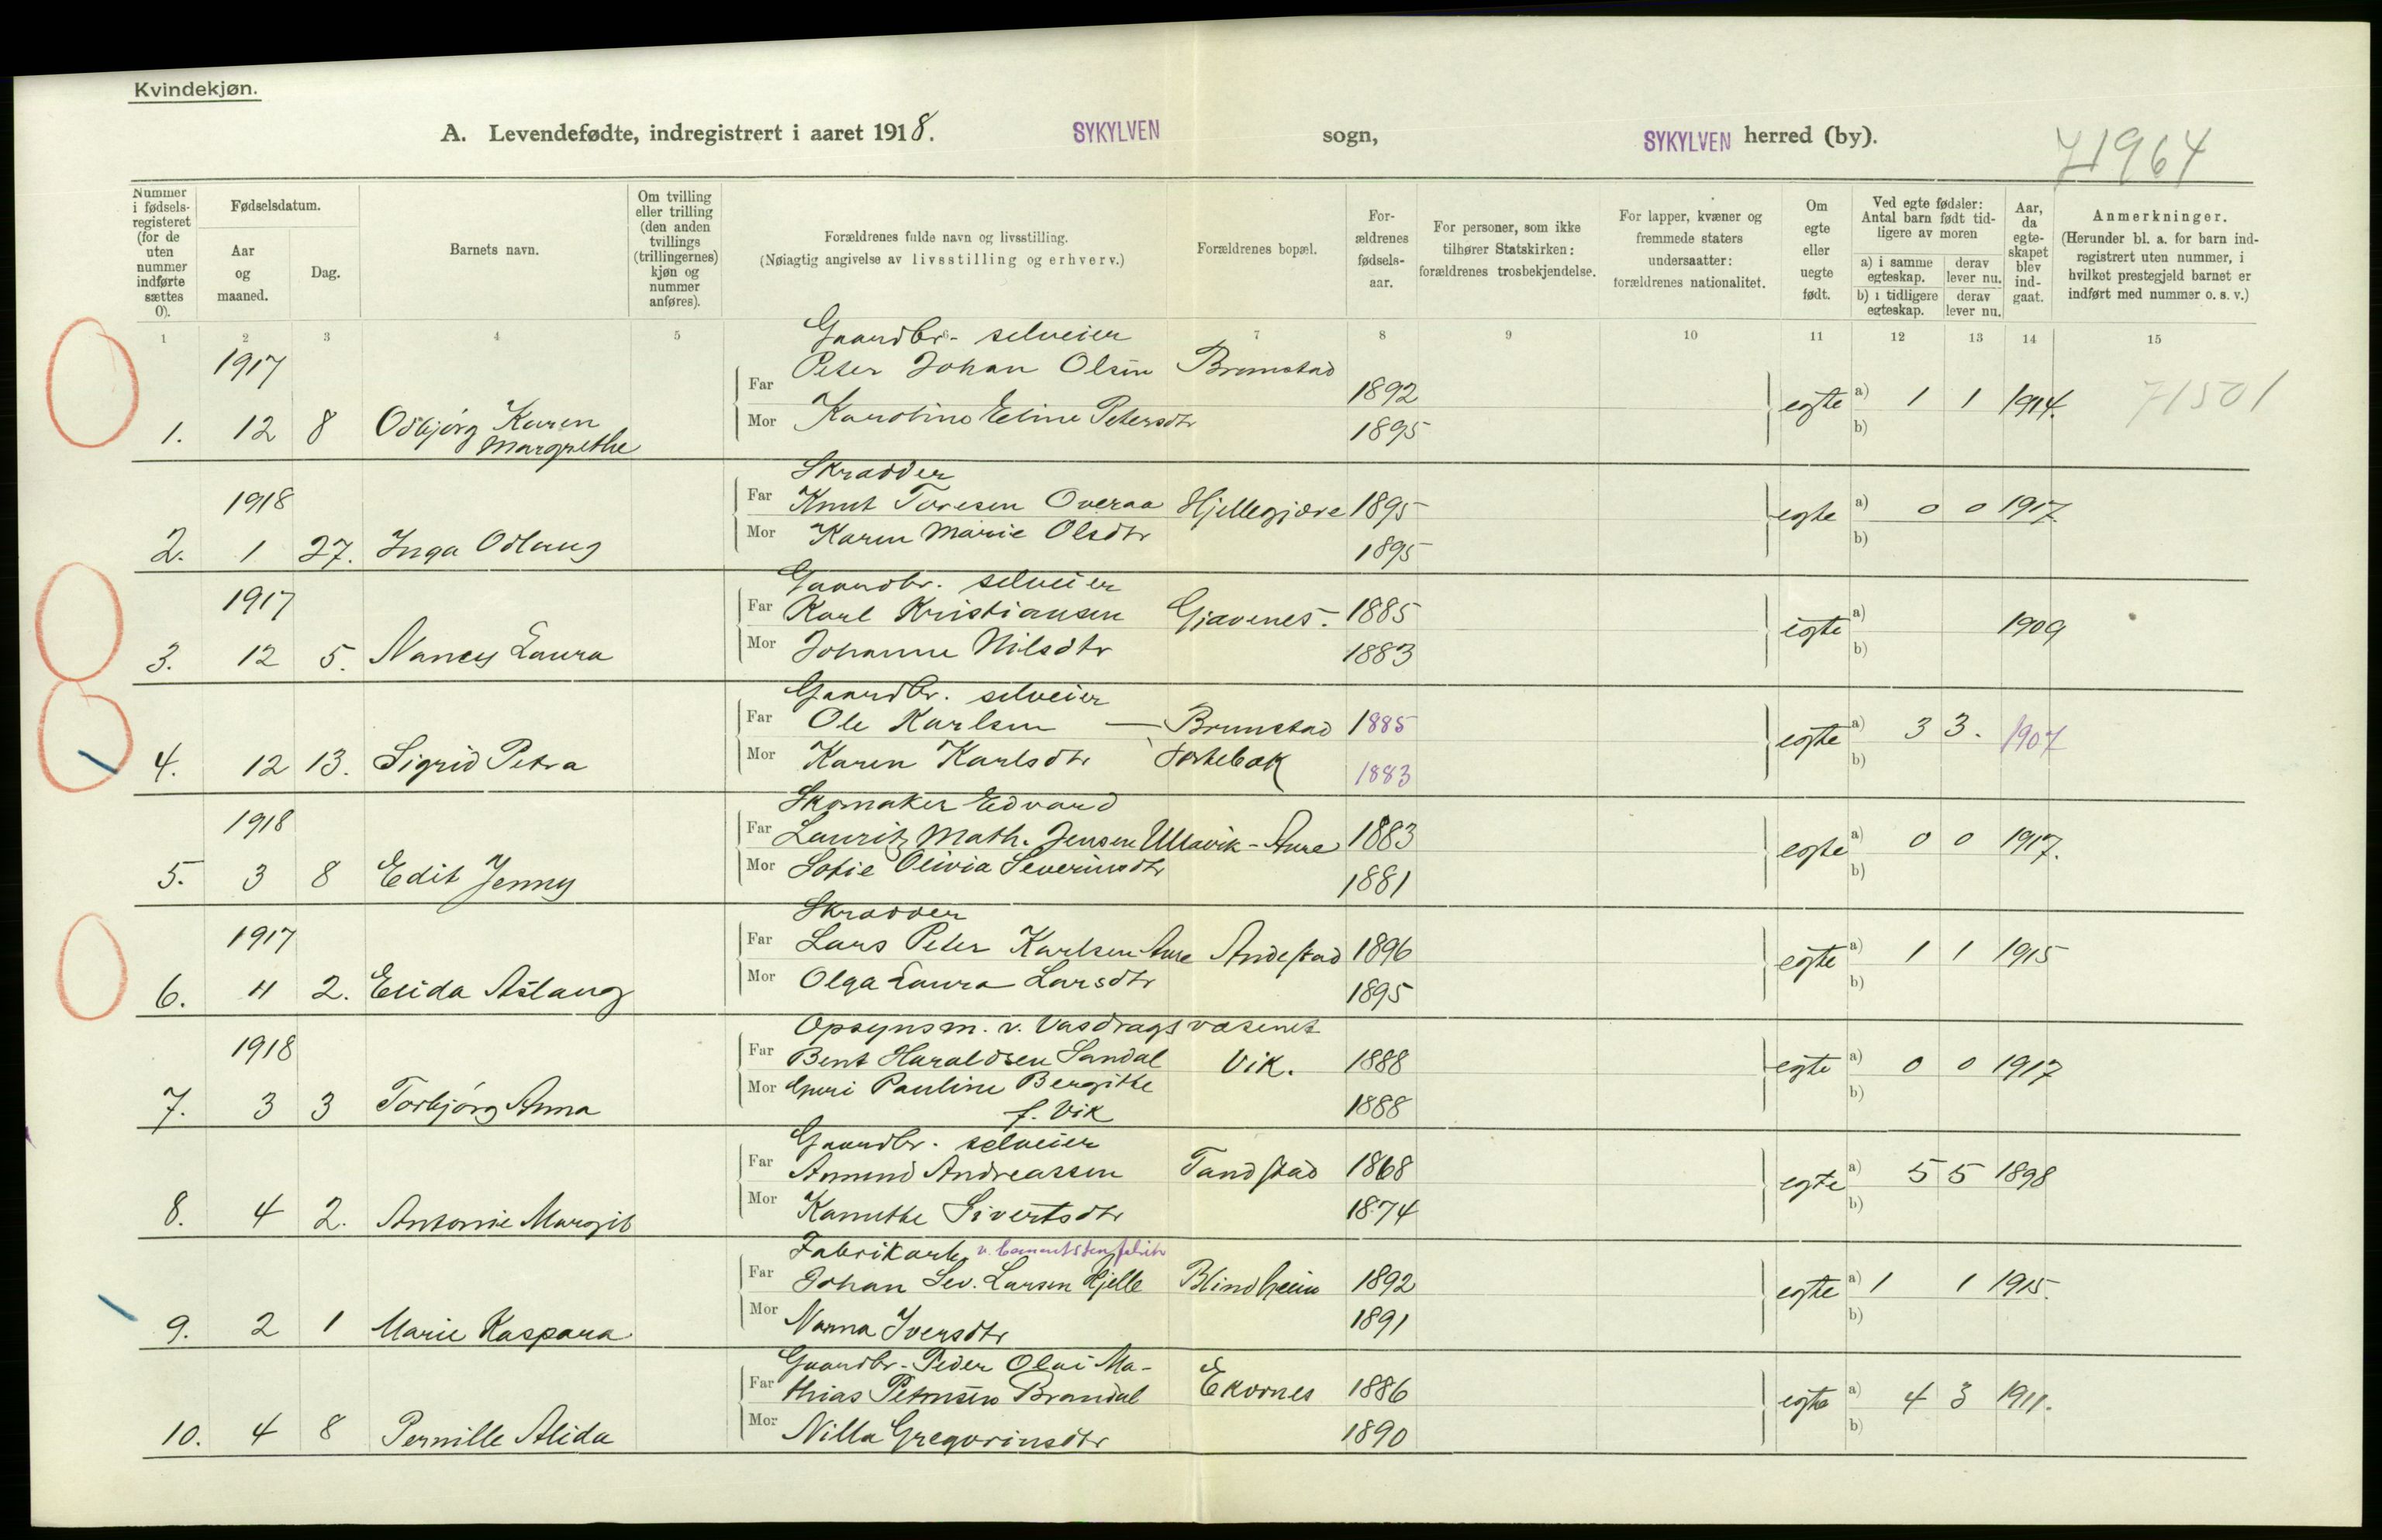 Kvindekjøn.
A. Levendefødte, indregistrert i aaret 1918. SYKYLVEN sogn, SYKYLVEN herred (by). 71964
Nummer i fødsels-registeret (for de uten nummer indførte sættes 0).
Fødselsdatum.
Aar og maaned.
Dag.
Barnets navn.
Om tvilling eller trilling (den anden tvillings (trillingernes) kjøn og nummer anføres).
Forældrenes fulde navn og livsstilling.
(Nøiagtig angivelse av livsstilling og erhverv.)
Forældrenes bopæl.
For-ældrenes fødsels-aar.
For personer, som ikke tilhører Statskirken: forældrenes trosbekjendelse.
For lapper, kvæner og fremmede staters undersaatter: forældrenes nationalitet.
Om egte eller uegte født.
Ved egte fødsler: Antal barn født tid-ligere av moren
a) i samme egteskap. derav lever nu.
b) i tidligere egteskap. derav lever nu.
Aar, da egte-skapet blev ind-gaat.
Anmerkninger.
(Herunder bl. a. for barn ind-registrert uten nummer, i hvilket prestegjeld barnet er indført med nummer o. s. v.)
1 2 3 4 5 6 7 8 9 10 11 12 13 14 15
Gaardbr. selveier
1917 Far Peter Johan Olsen Brunstad 1892
1. 12 8 Odbjørg Karen Margrethe Mor Karoline Eline Petersdtr 1895 egte a) 1 1 1914. 71501
b)
Skrædder
1918 Far Knut Toresen Overaa Hjellegjære 1895
2. 1 27. Inga Odlaug Mor Karen Marie Olsdtr 1895 egte a) 0 0 1917.
b)
Gaardbr. selveier
1917 Far Karl Kristiansen Gjævenes. 1885
3. 12 5. Nancy Laura Mor Johanne Nilsdtr 1883 egte a) 1909
b)
Gaardbr. selveier
Far Ole Karlsen — Brunstad 1885
4. 12 13. Sigrid Petra Mor Karen Karlsdtr 1883 egte a) 3 3. 1907
b)
Skomaker Edvard
1918 Far Laurits Math. Jensen Ullavik - Aure 1883
5. 3 8 Edit Jenny Mor Sofie Olivia Severinsdtr 1881 egte a) 0 0 1917.
b)
Skrædder
1917 Far Lars Peter Karlsen Aure Andestad 1896
6. 11 2. Elida Aslaug Mor Olga Laura Larsdtr 1895 egte a) 1 1 1915
b)
Opsynsm. v. Vasdragsvæsenet
1918 Far Bent Haraldsen Sandal Vik. 1888
7. 3 3 Torbjørg Anna Mor Guri Pauline Bergitte f. Vik 1888 egte a) 0 0 1917
b)
Gaardbr. selveier
Far Amund Andreassen Tandstad 1868
8. 4 2. Antonie Margit Mor Kanutte Sivertsdtr 1874 egte a) 5 5 1898
b)
Fabrikarb. v. Cementstenfabrik
Far Johan Sev. Larsen Hjelle Blindheim 1892
9. 2 1 Marie Kaspara Mor Nanna Iversdtr 1891 egte a) 1 1 1915.
b)
Gaardbr. Peder Olai Ma-
Far thias Petersen Brandal Ekornes 1886
10. 4 8 Pernille Alida Mor Nilla Gregoriusdtr 1890 egte a) 4 3 1911.
b)